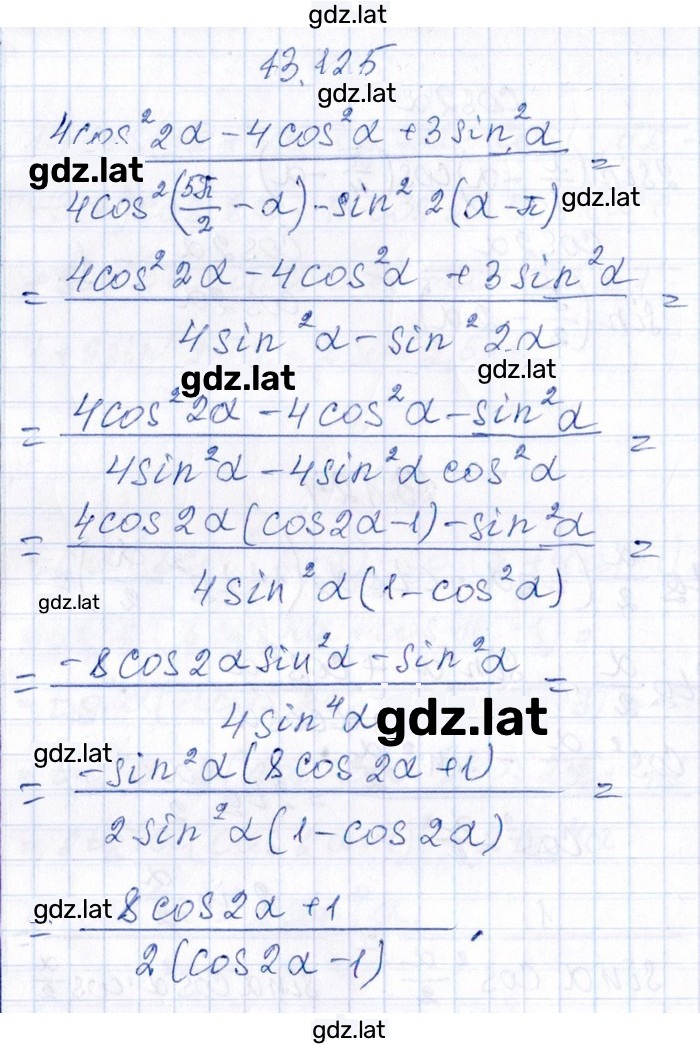 gdz.lat
13.125
gdz.lat
4cos²2α − 4cos²α + 3sin²α
gdz.lat
4cos²(5π/2 − α) − sin² 2(α − π) =
gdz.lat
= 4cos²2α − 4cos²α + 3sin²α =
4sin²α − sin²2α
gdz.lat
gdz.lat
= 4cos²2α − 4cos²α − sin²α =
4sin²α − 4sin²α cos²α
= 4cos2α(cos2α−1) − sin²α =
gdz.lat
4sin²α(1 − cos²α)
= −8cos2α sin²α − sin²α =
4sin⁴α
gdz.lat
gdz.lat
= −sin²α(8cos2α + 1) =
2sin²α(1 − cos2α)
gdz.lat
= 8cos2α + 1 .
2(cos2α − 1)
gdz.lat